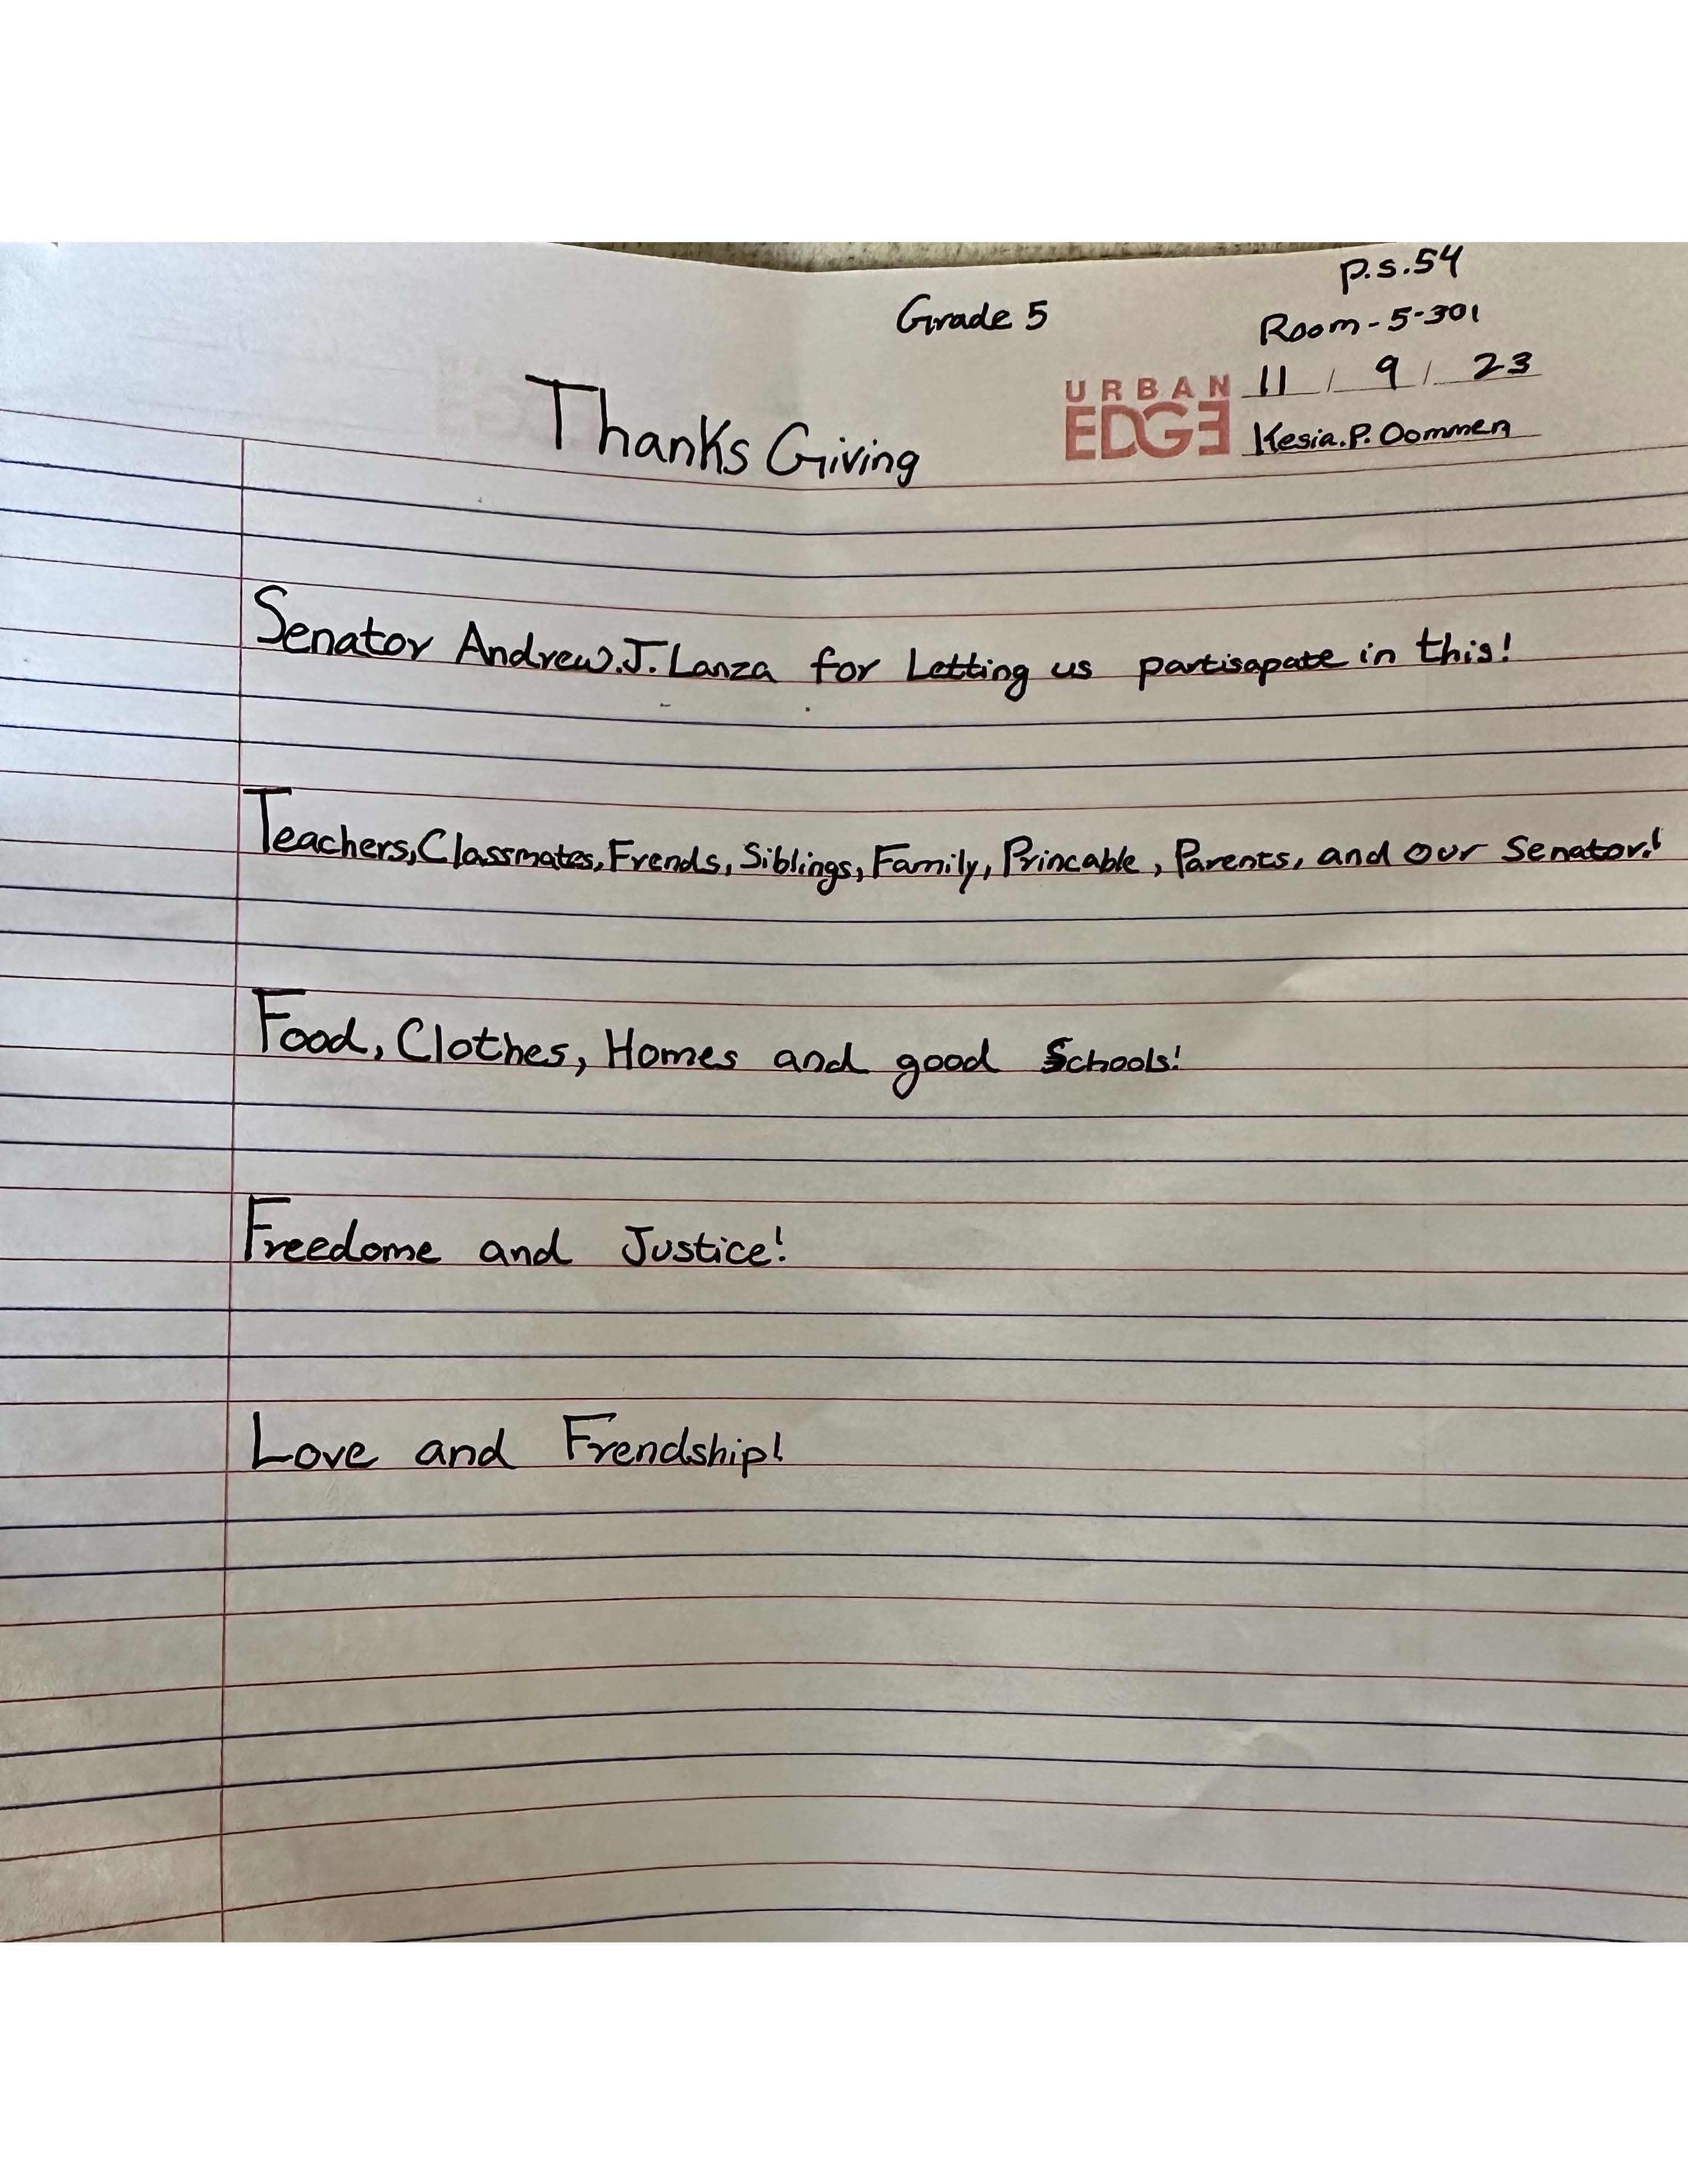 P.S.54
Grade 5
Room-5-301
URBAN 11 / 9 / 23
EDGE Kesia.P.Oommen
Thanks Giving
Senator Andrew.J.Lanza for Letting us partisapate in this!
Teachers,Classmates,Frends,Siblings,Family,Princable,Parents,and our Senator!
Food,Clothes,Homes and good Schools!
Freedome and Justice!
Love and Frendship!